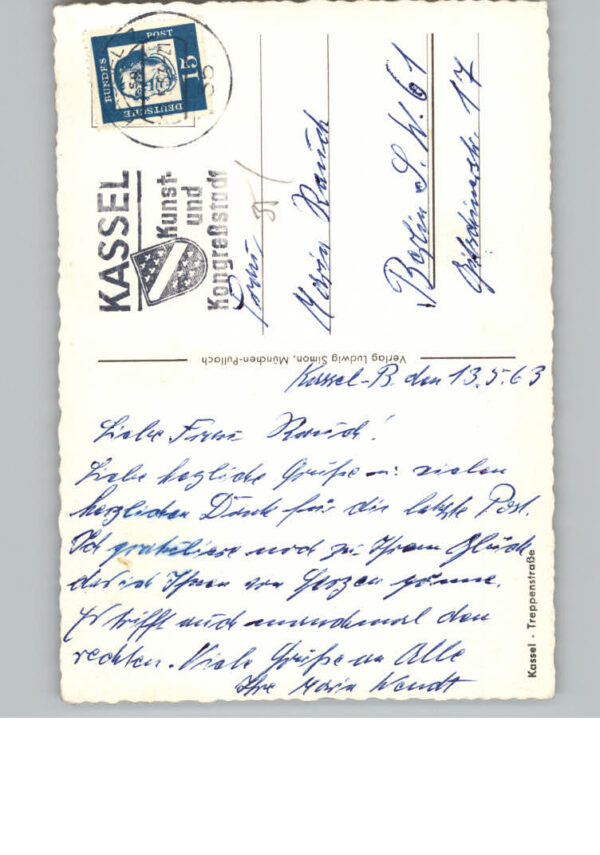 DEUTSCHE
BUNDES
POST
15
KASSEL
Kunst-
und
Kongreßstadt
Maria Rauch
Berlin S.W. 61
17
Verlag Ludwig Simon, München-Pullach
Kassel-B. den 13.5.63
Liebe Frau Rauch!
Liebe herzliche Grüße u. vielen
herzlichen Dank für die letzte Post.
Ich gratuliere noch zu Ihrem Glück
das ich Ihnen von Herzen gönne.
Es trifft auch manchmal den
rechten. Viele Grüße an Alle
Ihre Maria Wendt
Kassel · Treppenstraße